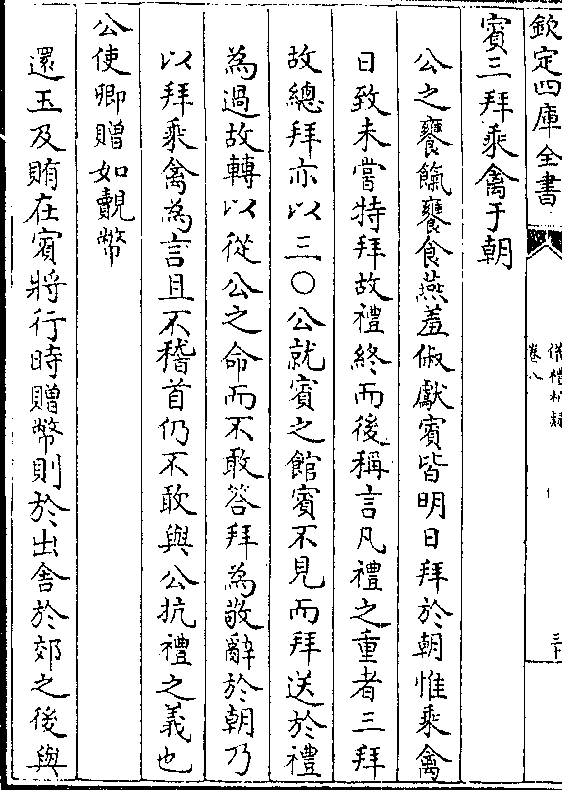 欽定四庫全書
儀禮析疑
卷八
三十
賓三拜乘禽于朝
公之饔餼饔食燕羞俶獻賓皆明日拜於朝惟乘禽
日致未嘗特拜故禮終而後稱言凡禮之重者三拜
故總拜亦以三○公就賓之館賓不見而拜送於禮
為過故轉以從公之命而不敢答拜為敬辭於朝乃
以拜乘禽為言且不稽首仍不敢與公抗禮之義也
公使卿贈如覿幣
還玉及賄在賓將行時贈幣則於出舍於郊之後與